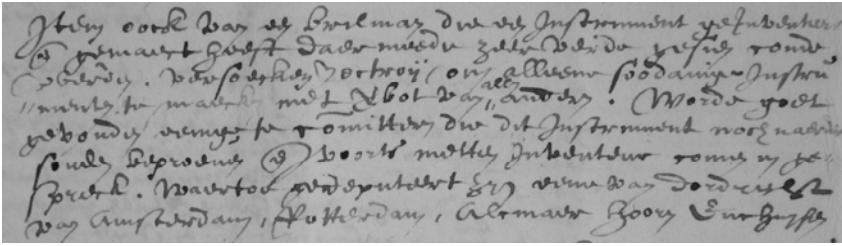 Item oock van een brilman die een Instrument geInventeer
en gemaect heeft daer meede zeer verde gesien conde
werden. versoecken octroij, om alleene soodanige Instru
menten te maecken met Rbot van allen anderen. Worde goet
gevonden eenige te comitteren die dit Instrument noch naerder
souden beproeven en voorts metten Inventeur comen in ge
spreck. Waertoe gedeputeert zijn eene van dordrecht
van Amsterdam, Rotterdam, Alcmaer hoorn Enchuijsen